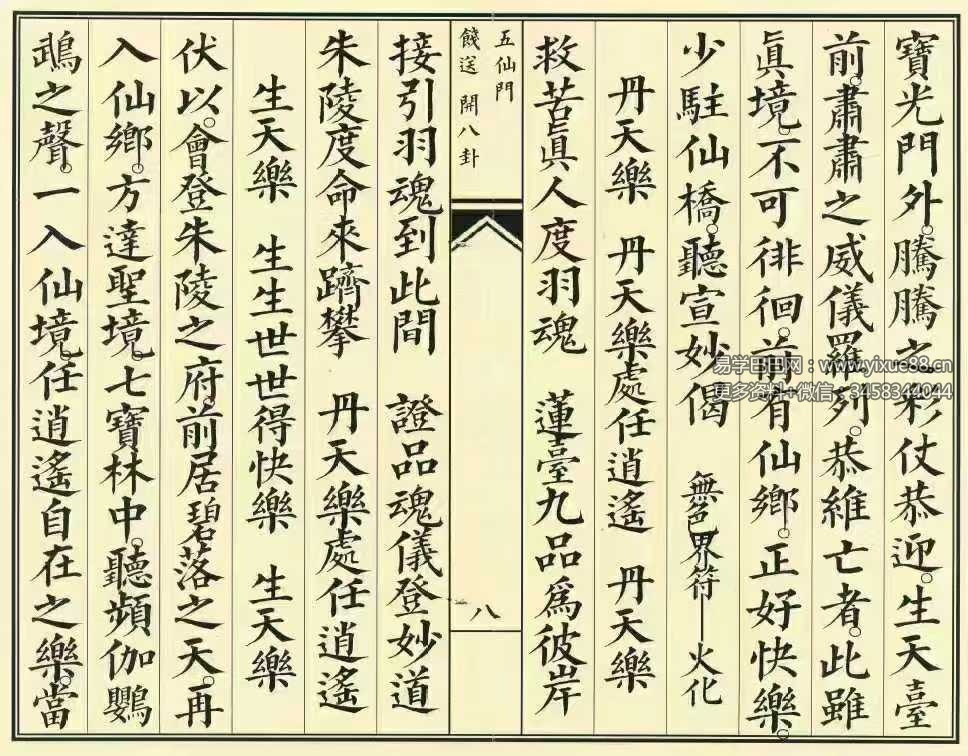 寶光門外。騰騰之彩仗恭迎。生天臺
前。肅肅之威儀羅列。恭維亡者。此雖
眞境。不可徘徊。前有仙鄉。正好快樂。
少駐仙橋。聽宣妙偈 無色界符—火化
丹天樂 丹天樂處任逍遙 丹天樂
救苦眞人度羽魂 蓮臺九品爲彼岸
五仙門
餞送 開八卦
八
接引羽魂到此間 證品魂儀登妙道
朱陵度命來躋攀 丹天樂處任逍遙
生天樂 生生世世得快樂 生天樂
伏以。會登朱陵之府。前居碧落之天。再
入仙鄉。方達聖境。七寶林中。聽頻伽鸚
鵡之聲。一入仙境。任逍遙自在之樂。當
易学巴巴网：www.yixue88.cn
更多资料+微信：3458344044